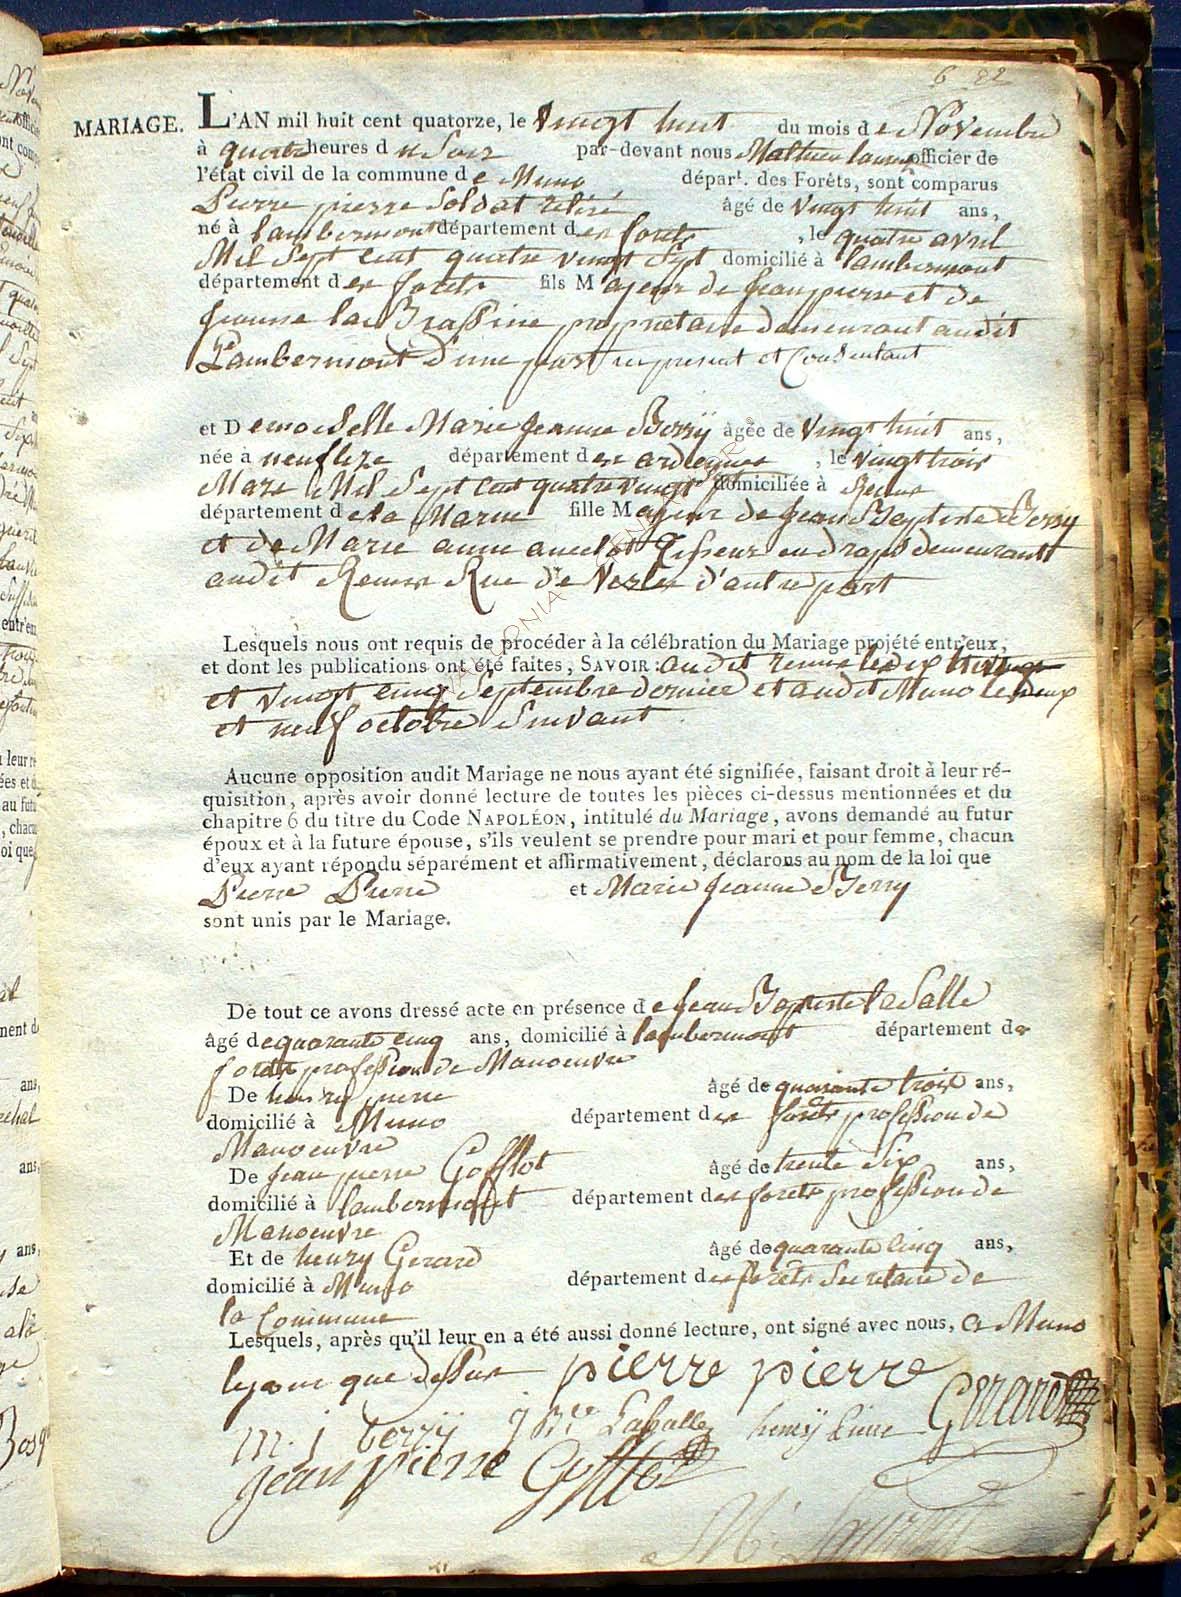 6 82
MARIAGE. L'AN mil huit cent quatorze, le vingt huit du mois de Novembre
à quatre heures du Soir par-devant nous Mathieu Laurent officier de
l'état civil de la commune de Muno départ. des Forêts, sont comparus
Pierre pierre Soldat retiré âgé de vingt huit ans,
né à lambermont département des forets, le quatre avril
Mil Sept cent quatre vingt Sept domicilié à lambermont
département des forets fils Majeur de Jean pierre et de
Jeanne la Brassine proprietaire demeurant audit
Lambermont d'une part ici present et Consentant
et Demoiselle Marie Jeanne Berry âgée de vingt huit ans,
née à neuflize département des ardennes, le vingt trois
Mars Mil Sept cent quatre vingt domiciliée à Reims
département de la Marne fille Majeur de Jean Baptiste Berry
et de Marie anne ancelot Tisseur en draps demeurants
audit Reims Rue de Nesles d'autre part
Lesquels nous ont requis de procéder à la célébration du Mariage projété entr'eux,
et dont les publications ont été faites, SAVOIR : audit reims le dix huit
et vingt cinq Septembre dernier et audit Muno le deux
et neuf octobre Suivant
Aucune opposition audit Mariage ne nous ayant été signifiée, faisant droit à leur ré-
quisition, après avoir donné lecture de toutes les pièces ci-dessus mentionnées et du
chapitre 6 du titre du Code NAPOLÉON, intitulé du Mariage, avons demandé au futur
époux et à la future épouse, s'ils veulent se prendre pour mari et pour femme, chacun
d'eux ayant répondu séparément et affirmativement, déclarons au nom de la loi que
Pierre Pierre et Marie Jeanne Berry
sont unis par le Mariage.
De tout ce avons dressé acte en présence de Jean Baptiste laSalle
âgé de quarante cinq ans, domicilié à lambermont département des
forets profession de Manoeuvre
De henry pierre âgé de quarante trois ans,
domicilié à Muno département des forets profession de
Manoeuvre
De Jean pierre Gofflot âgé de trente Six ans,
domicilié à lambermont département des forets profession de
Manoeuvre
Et de henry Gerard âgé de quarante cinq ans,
domicilié à Muno département des forets Secretaire de
la Commune
Lesquels, après qu'il leur en a été aussi donné lecture, ont signé avec nous, a Muno
le jour que dessus pierre pierre Gerard
m. j berrÿ J Bte Lasalle henrÿ pierre
Jean pierre Gofflot
M. Laurent